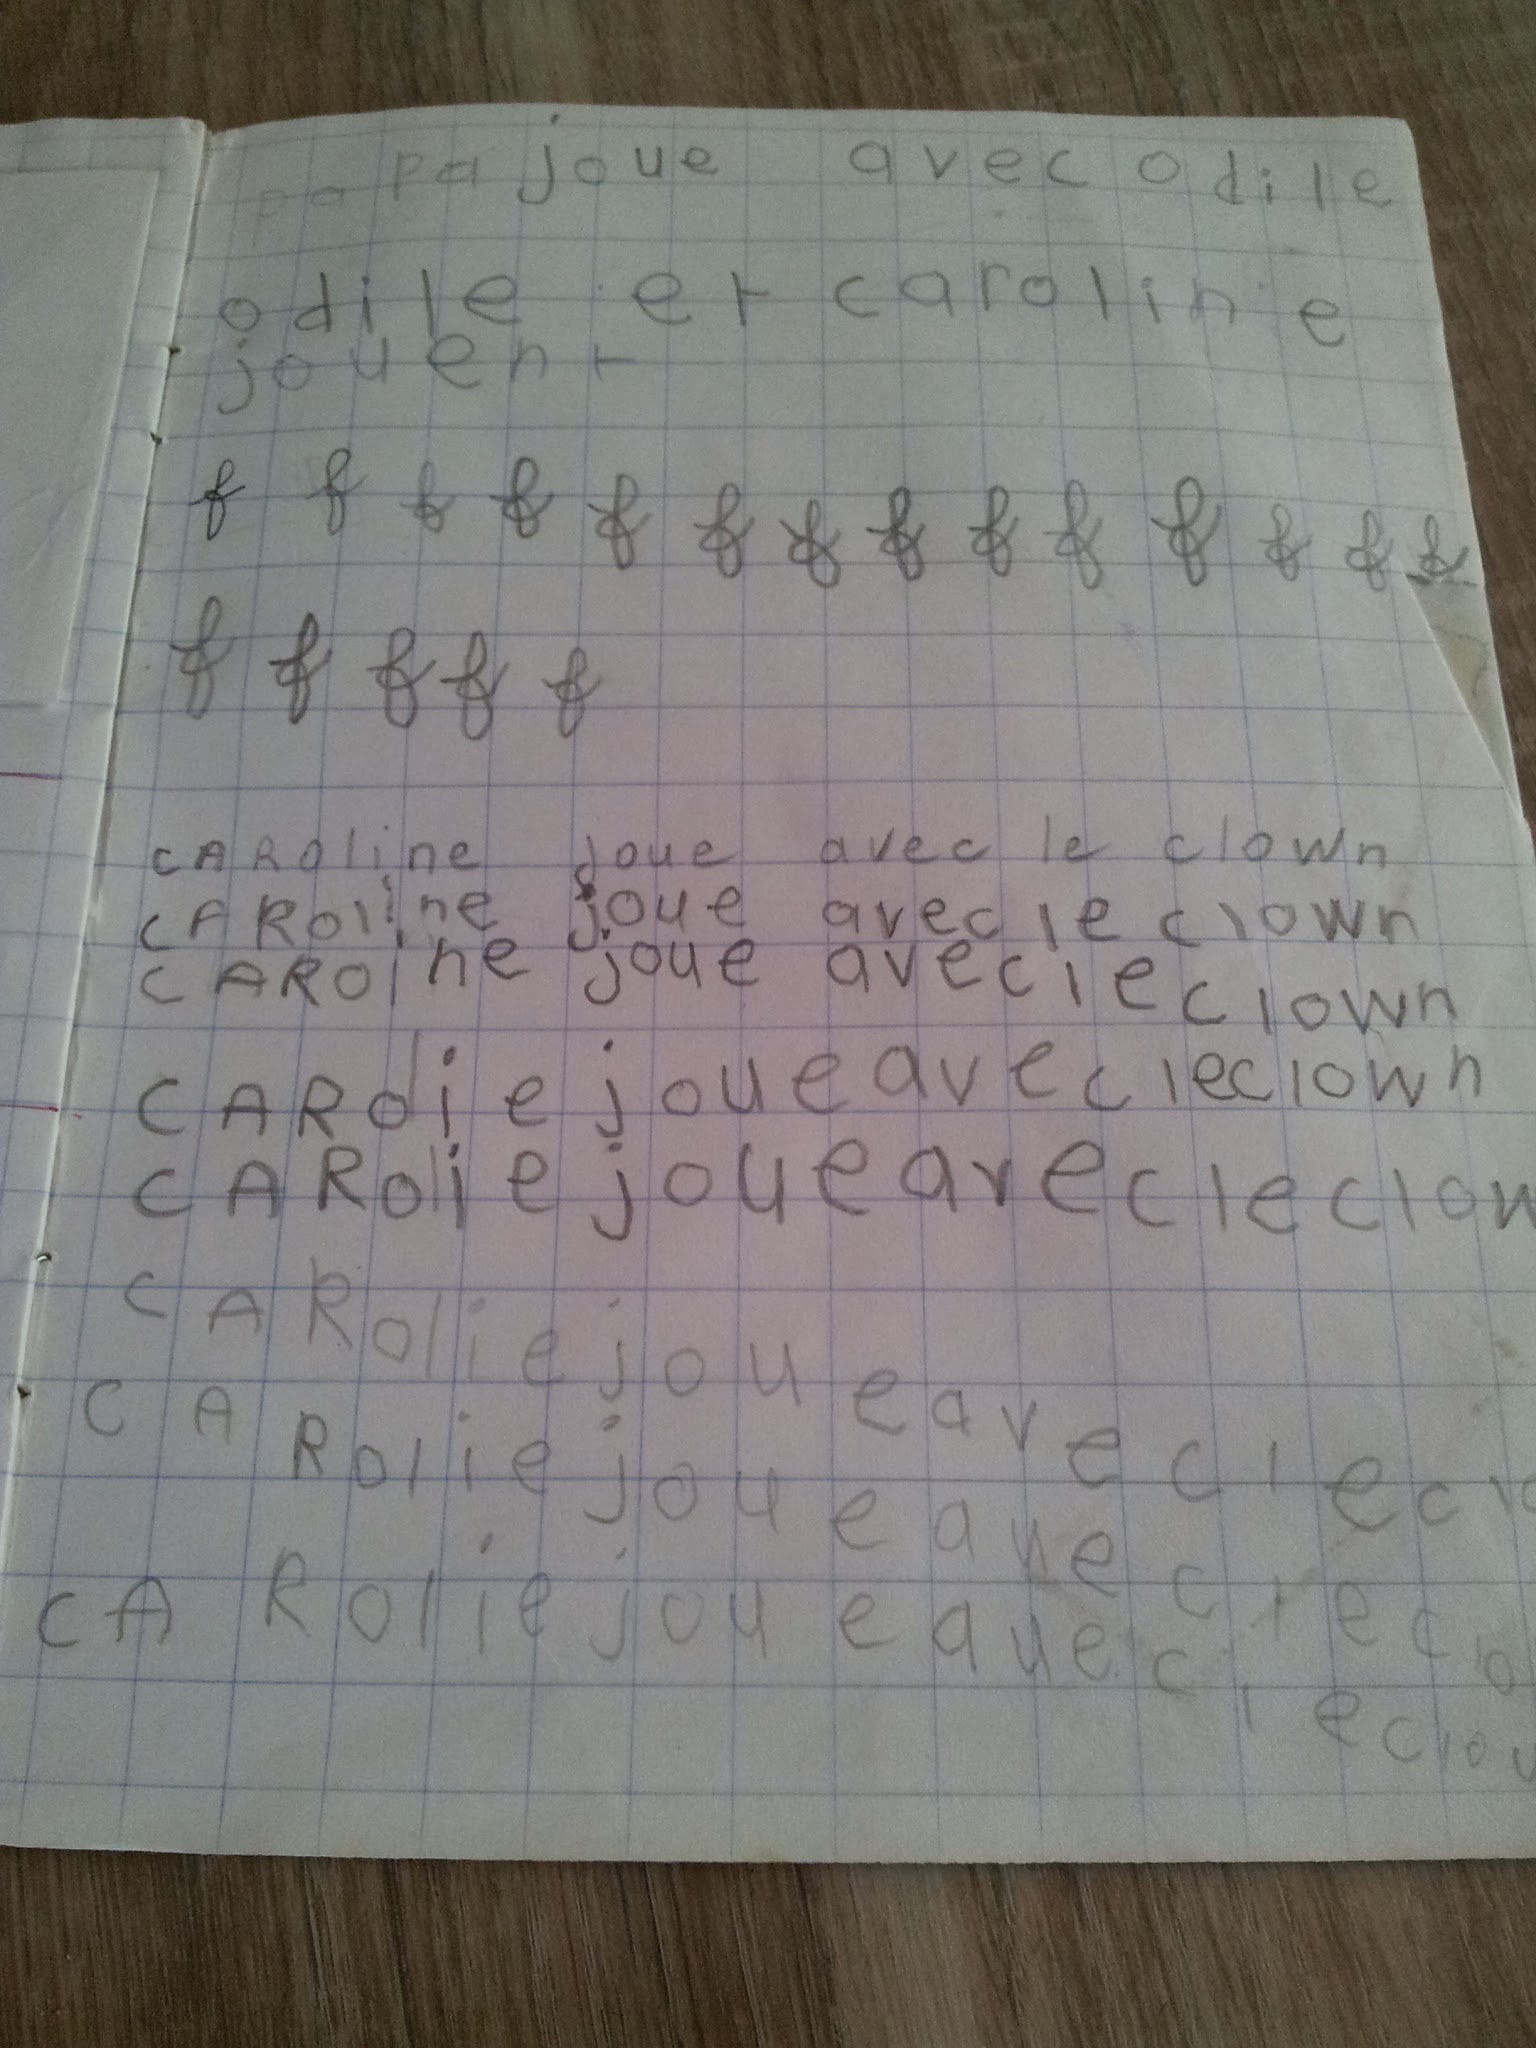 papa joue avec odile
odile et caroline
jouent
f f f f f f f f f f f f f f
f f f f f
CARoline joue avec le clown
CARoline joue avec le clown
CARoine joue avec le clown
CARolie joue avec le clown
CARolie joue avec le clow
CARolie joue avec le clo
CARolie joue avec le clo
CARolie joue avec le clow